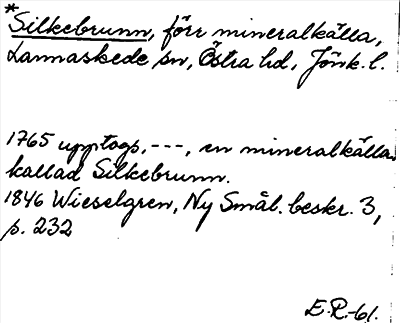 *
Silkebrunn, förr mineralkälla,
Lannaskede sn, Östra hd, Jönk. l.
1765 upptogs, ---, en mineralkälla,
kallad Silkebrunn.
1846 Wieselgren, Ny Smål. beskr. 3,
p. 232
E.R.-61.